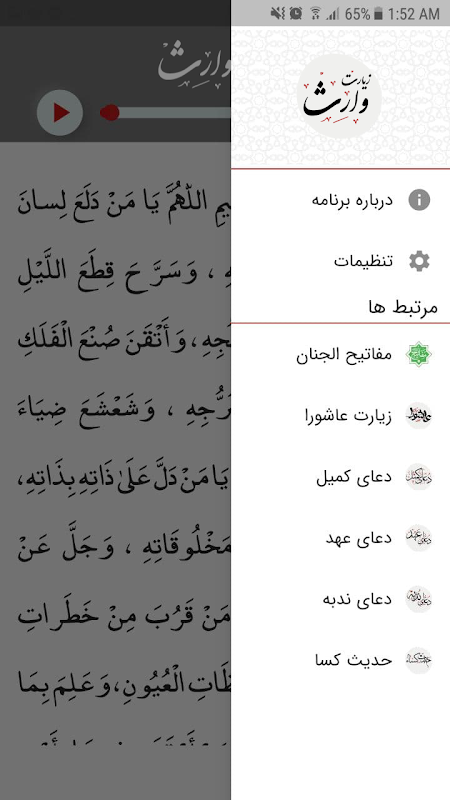 65% 1:52 AM
زیارت
وارث
وارث
درباره برنامه
تنظیمات
مرتبط ها
مفاتیح الجنان
زیارت عاشورا
دعای کمیل
دعای عهد
دعای ندبه
حدیث کسا
اَللّٰهُمَّ يَا مَنْ دَلَعَ لِسانَ
، وَسَرَّحَ قِطَعَ اللَّيْلِ
، وَأَتْقَنَ صُنْعَ الْفَلَكِ
، وَشَعْشَعَ ضِيَاءَ
يَا مَنْ دَلَّ عَلَىٰ ذَاتِهِ بِذَاتِهِ،
مَخْلُوقَاتِهِ ، وَجَلَّ عَنْ
مَنْ قَرُبَ مِنْ خَطَراتِ
الْعُيُونِ، وَعَلِمَ بِمَا